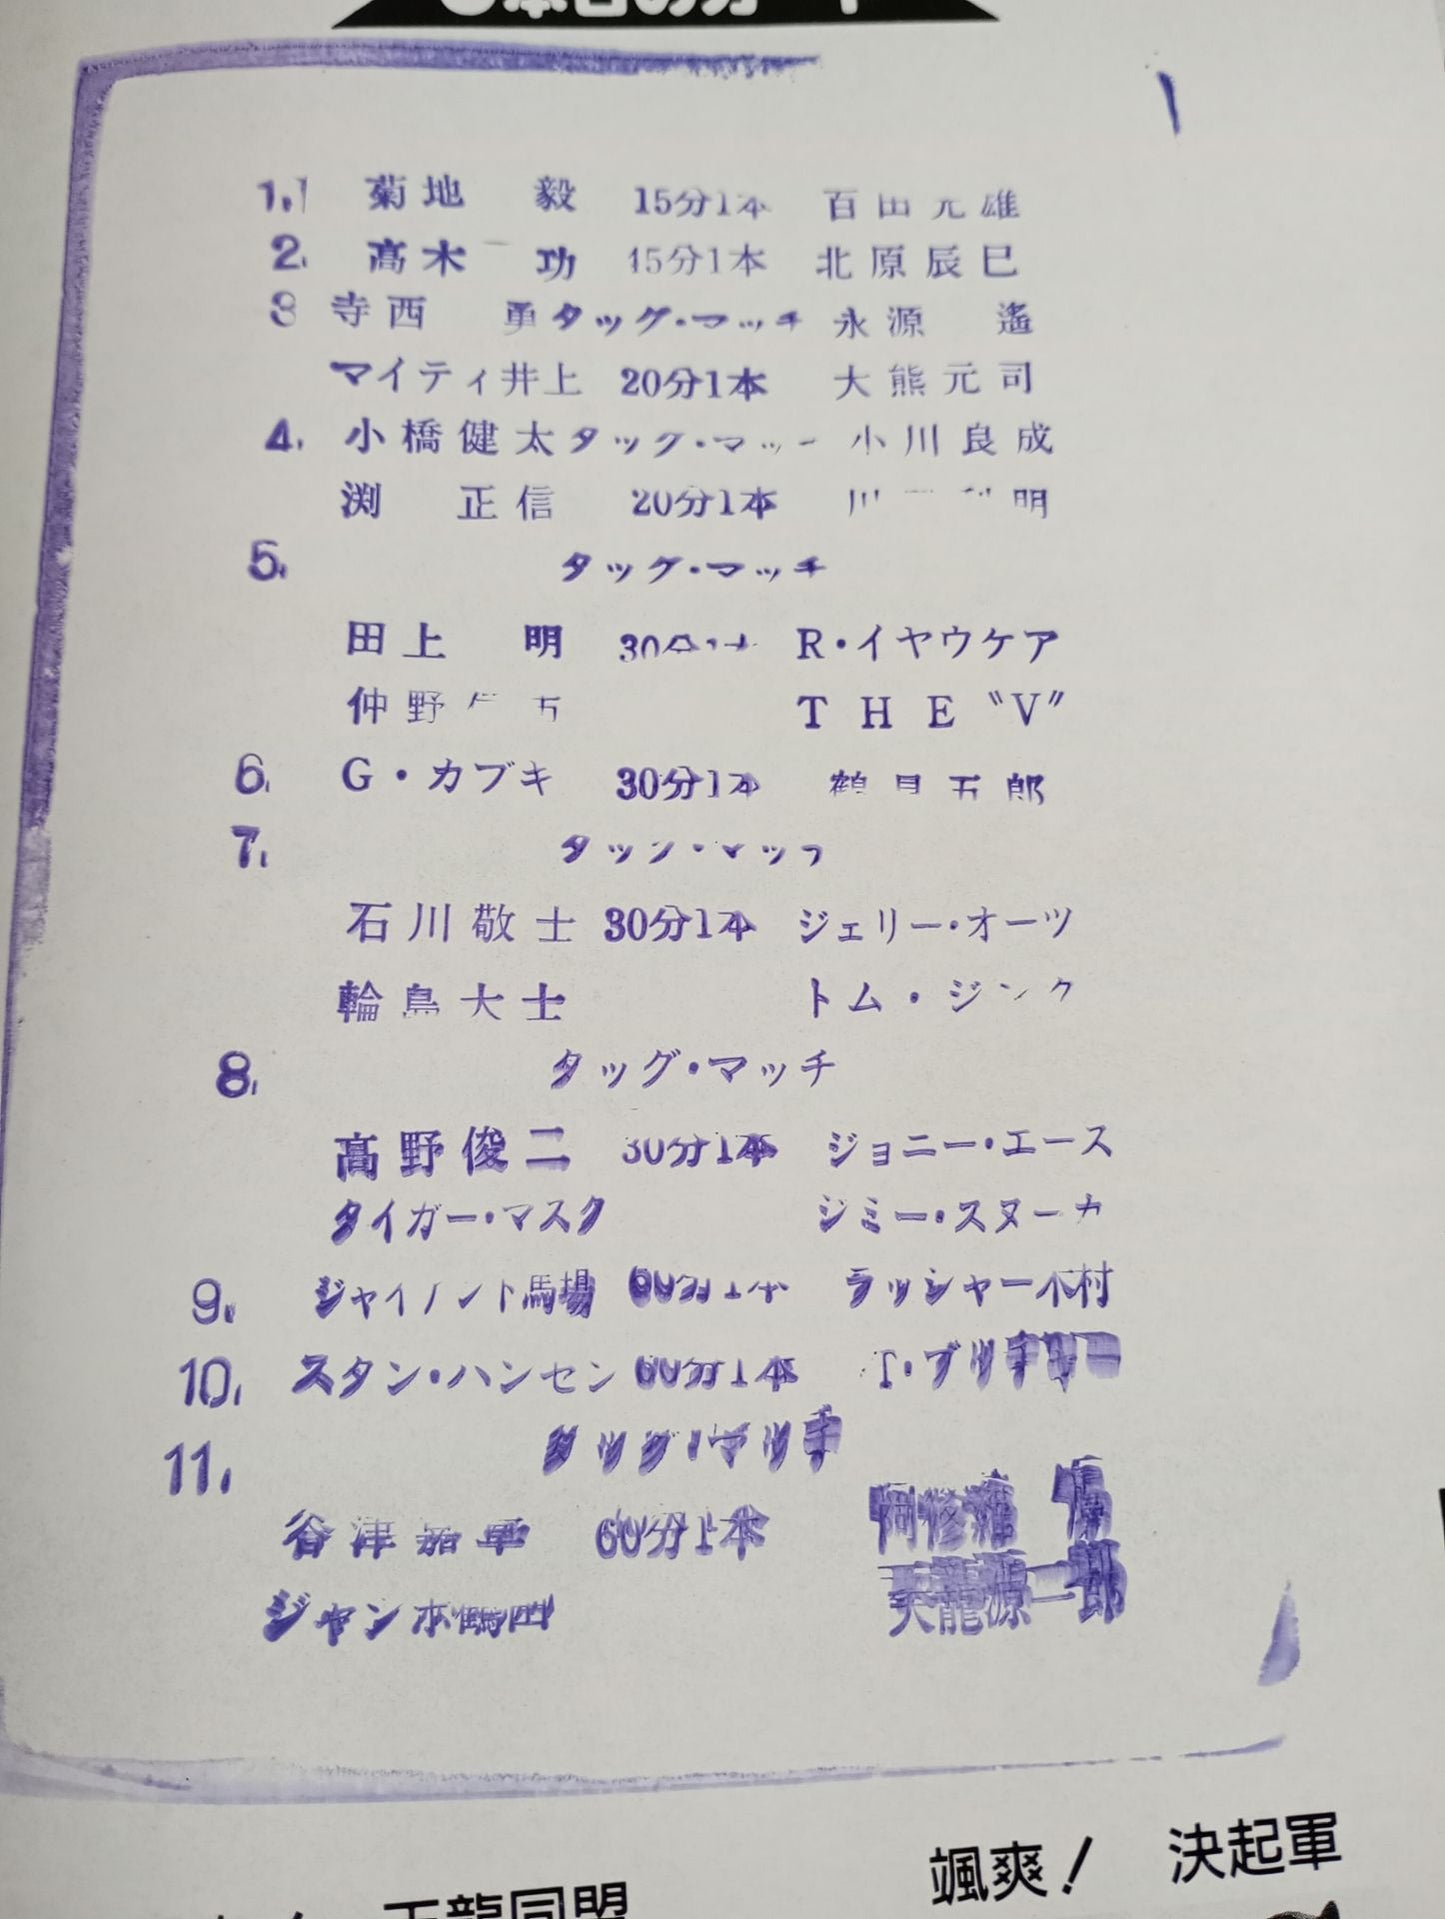 本日のカード
1. 菊地 毅 15分1本 百田光雄
2. 高木 功 45分1本 北原辰巳
3 寺西 勇 タッグ・マッチ 永源 遙
マイティ井上 20分1本 大熊元司
4. 小橋健太 タッグ・マッチ 小川良成
渕 正信 20分1本 明
5. タッグ・マッチ
田上 明 30分1本 R・イヤウケア
仲野 THE〝V〟
6. G・カブキ 30分1本 鶴見五郎
7. タッグ・マッチ
石川敬士 30分1本 ジェリー・オーツ
輪島大士 トム・ジンク
8. タッグ・マッチ
高野俊二 30分1本 ジョニー・エース
タイガー・マスク ジミー・スヌーカ
9. ジャイアント馬場 60分1本 ラッシャー木村
10. スタン・ハンセン 60分1本 T・ブリチャー
11. タッグ・マッチ
谷津嘉章 60分1本 阿修羅 原
ジャンボ鶴田 天龍源一郎
颯爽! 決起軍
天龍同盟